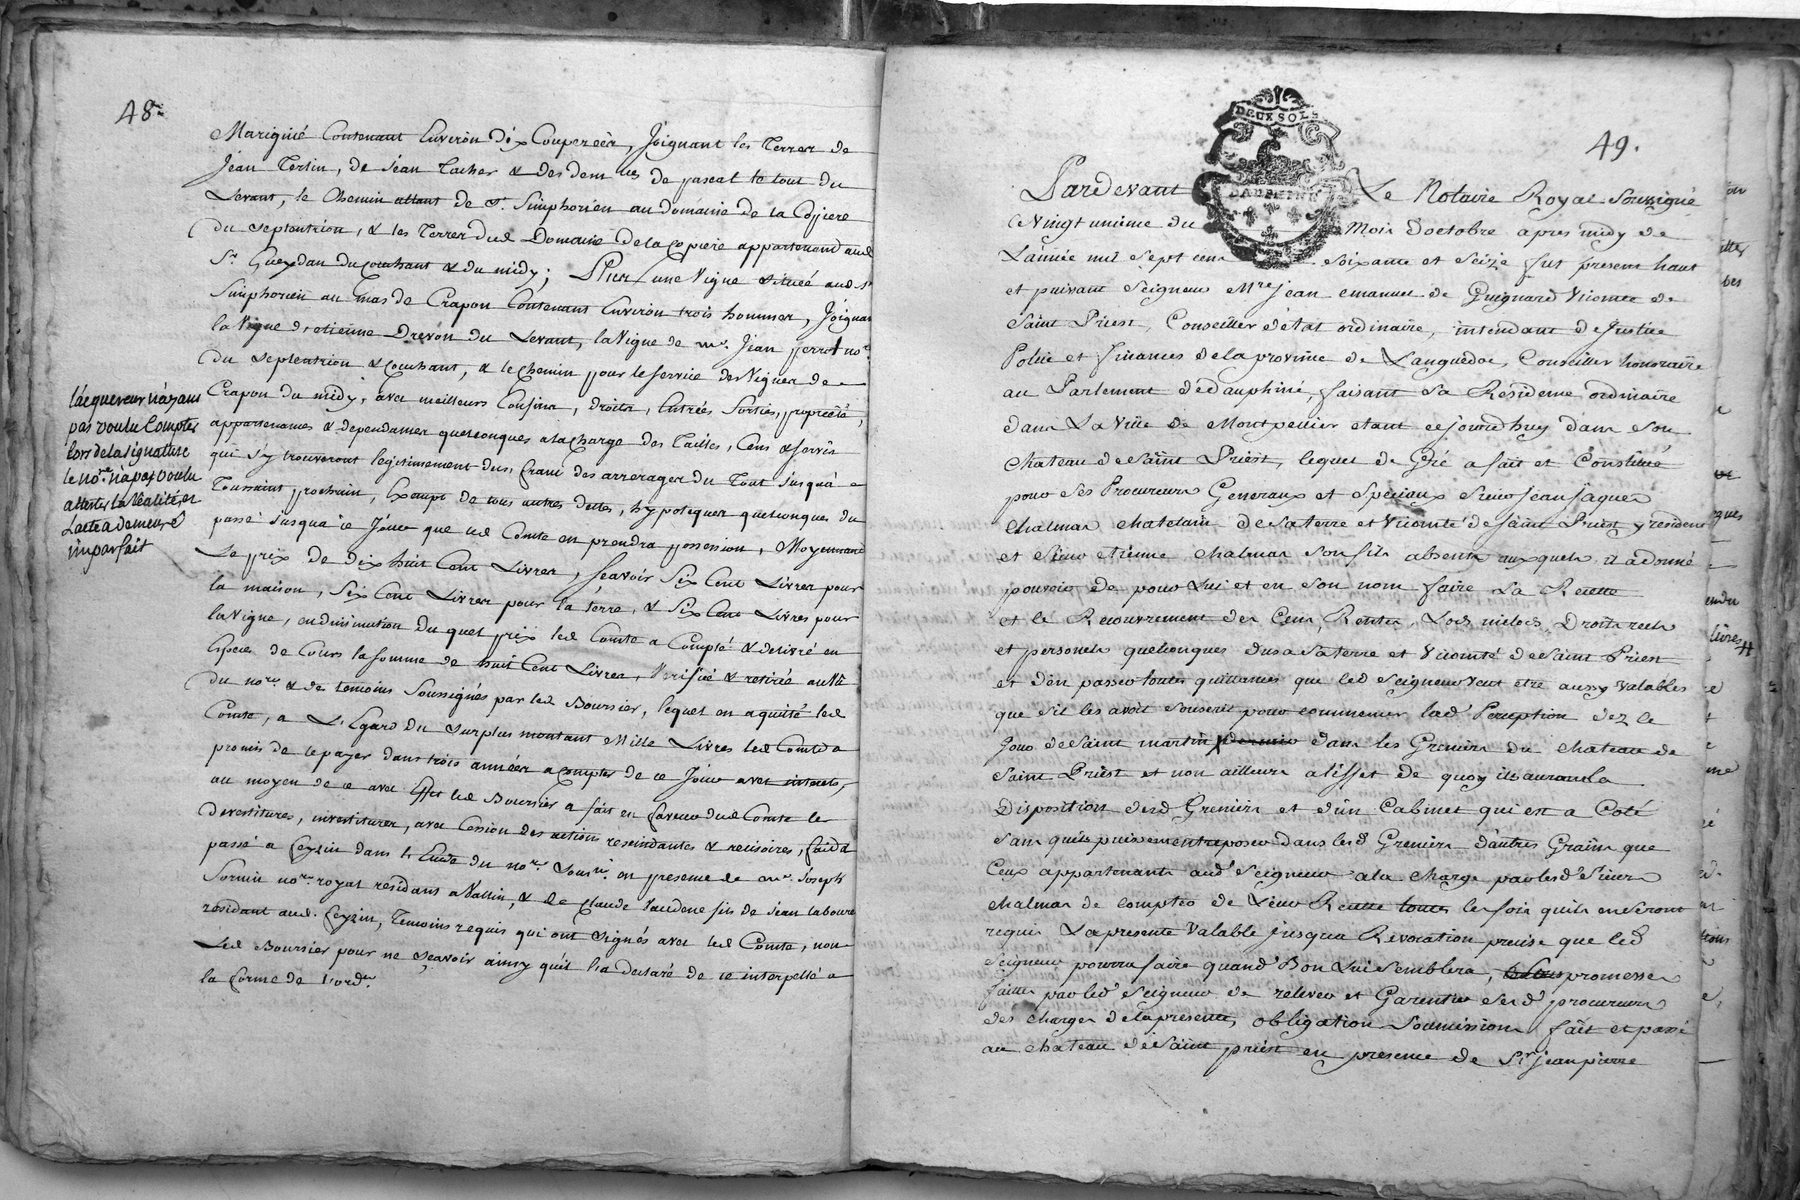 48.
Marignié Contenant Environ dix Couperées, Joignant les Terres de
Jean Tertin, de Jean Tacher & des dem.lles de pascal le tout du
Levant, le Chemin allant de St. Simphorien au domaine de la Copiere
du septentrion, & les Terres dud. Domaine de la Copiere appartenond aud.
Sr. Gueydan du couchant & du midy; Plus une Vigne située aud. St
Simphorien au mas de Crapon Contenant Environ trois hommes, Joignan
la Vigne d'etienne Drevon du Levant, la Vigne de me. Jean perrot nore.
du septentrion & couchant, & le chemin pour le service des Vignes de
Crapon du midy, avec meilleurs Confins, droits, Entrées Sorties, proprieté,
appartenances & dependances quelconques a la charge des Tailles, Cens & servis
qui s'y trouveront legitimement dus franc des arrerages du Tout jusqu'a
Toussaint prochain, Exempt de tous autres dettes, hypoteques quelconques du
passé jusqua ce Jour que led Comte en prendra possession, Moyennant
Le prix de dix huit Cent Livres, sçavoir Six Cent Livres pour
la maison, Six Cent Livres pour la terre, & Six Cent Livres pour
la Vigne, en diminution du quel prix led Comte a Compté & delivré en
Espece de Cours la somme de huit Cent Livres, Verifié & retirée au Vû
du nore. & des temoins Soussignés par led Boursier, lequel en a quitté led
Comte, a L'Egard du surplus montant Mille Livres led Comte a
promis de le payer dans trois années a compter de ce Jour avec interets,
au moyen de ce avec Effet led Boursier a fait en faveur dud Comte les
devestitures, investitures, avec Cession des actions rescindantes & recisoires, fait &
passé a feyzin dans l'Etude du nore. Sousné. en presence de me. Joseph
Sornin nore. royal residant a Vallin, & de Claude Vaudene fils de jean laboure
residant aud. feyzin, Temoins requis qui ont signés avec led Comte, non
Led Boursier pour ne sçavoir ainsy qu'il l'a declaré de ce interpellé a
la forme de l'ordce.
l'acquereur n'ayans
pas voulu Compter
lors de la signature
le nore. n'a pas voulu
attester la réalité, et
L'acte a demeuré
imparfait
DEUX SOLS
DAUPHINÉ
49.
Pardevant Le Notaire Royal Soussigné
Ce Vingt unieme du Mois Doctobre apres midy de
L'année mil Sept cens Soixante et Seize fut present haut
et puissant Seigneur Mre jean emanuel de Guignard Vicomte de
Saint Priest, Conseiller d'état ordinaire, intendant de Justice
Police et finances de la province de Languedoc, Conseiller honoraire
au Parlement de dauphiné, faisant Sa Residence ordinaire
dans La Ville de Montpellier etant cejourdhuy dans Son
chateau de Saint Priest, lequel de Gré a fait et Constitué
pour Ses Procureurs Generaux et Speciaux Sieur jean jaques
chalmas chatelain de Sa terre et Vicomté de Saint Priest y resident
et Sieur etienne chalmas Son fils absents auxquels il a donné
pouvoir de pour Lui et en Son nom faire La Recette
et le Recouvrement des Cens, Rentes, Lods milods Droits reels
et personels quelconques dus a Sa terre et Vicomté de Saint Priest
et d'en passer toutes quittances que led Seigneur Veut etre aussy Valables
que s'il les avoit Souscrit pour commencer lad Perception dez le
jour de Saint martin dernier dans les Greniers du chateau de
Saint Priest et non ailleurs a l'effet de quoy ils auront la
Disposition desd Greniers et d'un Cabinet qui est a Coté
Sans quils puissent entreposer dans lesd Greniers d'autres Grains que
Ceux appartenants aud Seigneur a la charge par lesd Sieurs
chalmas de compter de Leur Recette toutes les fois quils en Seront
requis La presente Valable jusqua Revocation precise que led
Seigneur pourra faire quand Bon Lui Semblera, promesses
faites par led Seigneur de relever et Garentir Sesd procureurs
des charges de la presente, obligations Soumissions fait et passé
au chateau de Saint priest en presence de Sr jean pierre